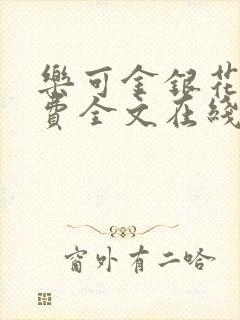 樂可金銀花
費全文在綫
窗外有二哈